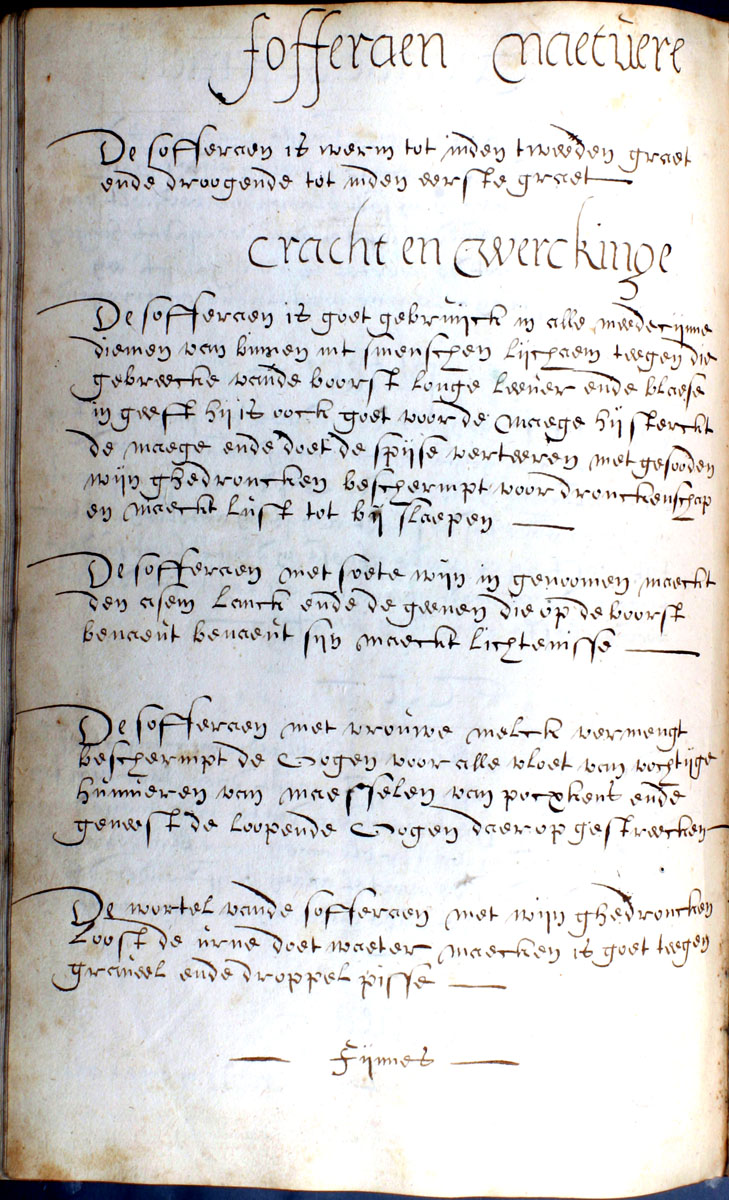 soffernaen naetuere
De sofferaen is werm tot inden tweeden graet
ende droogende tot inden eerste graet
cracht en werckinge
De sofferaen is goet gebruijck in alle medecijnne
diemen van binnen int smenschen lijchaem teegen die
gebreecke vande boorst longe leever ende blaese
in geeft hij is oock goet voor de maege hij sterckt
de maege ende doet de spijse verteeren met gesooden
wijn ghedroncken beschermpt voor dronckenschap
en maeckt lust tot bij slaepen
De sofferaen met soete wijn in genoomen maeckt
den asem lanck ende de geenen die op de boorst
benaeut benaeut sijn maeckt lichtenisse
De sofferaen met vrouwe melck vermengt
beschermpt de Oogen voor alle vloet van vochtijge
humueren van maesselen van pocxkens ende
geneest de loopende Oogen daer op gestreecken
De wortel vande sofferaen met wijn ghedroncken
Loost de urne doet waeter maecken is goet teegen
graveel ende droppel pisse
Fijnnes